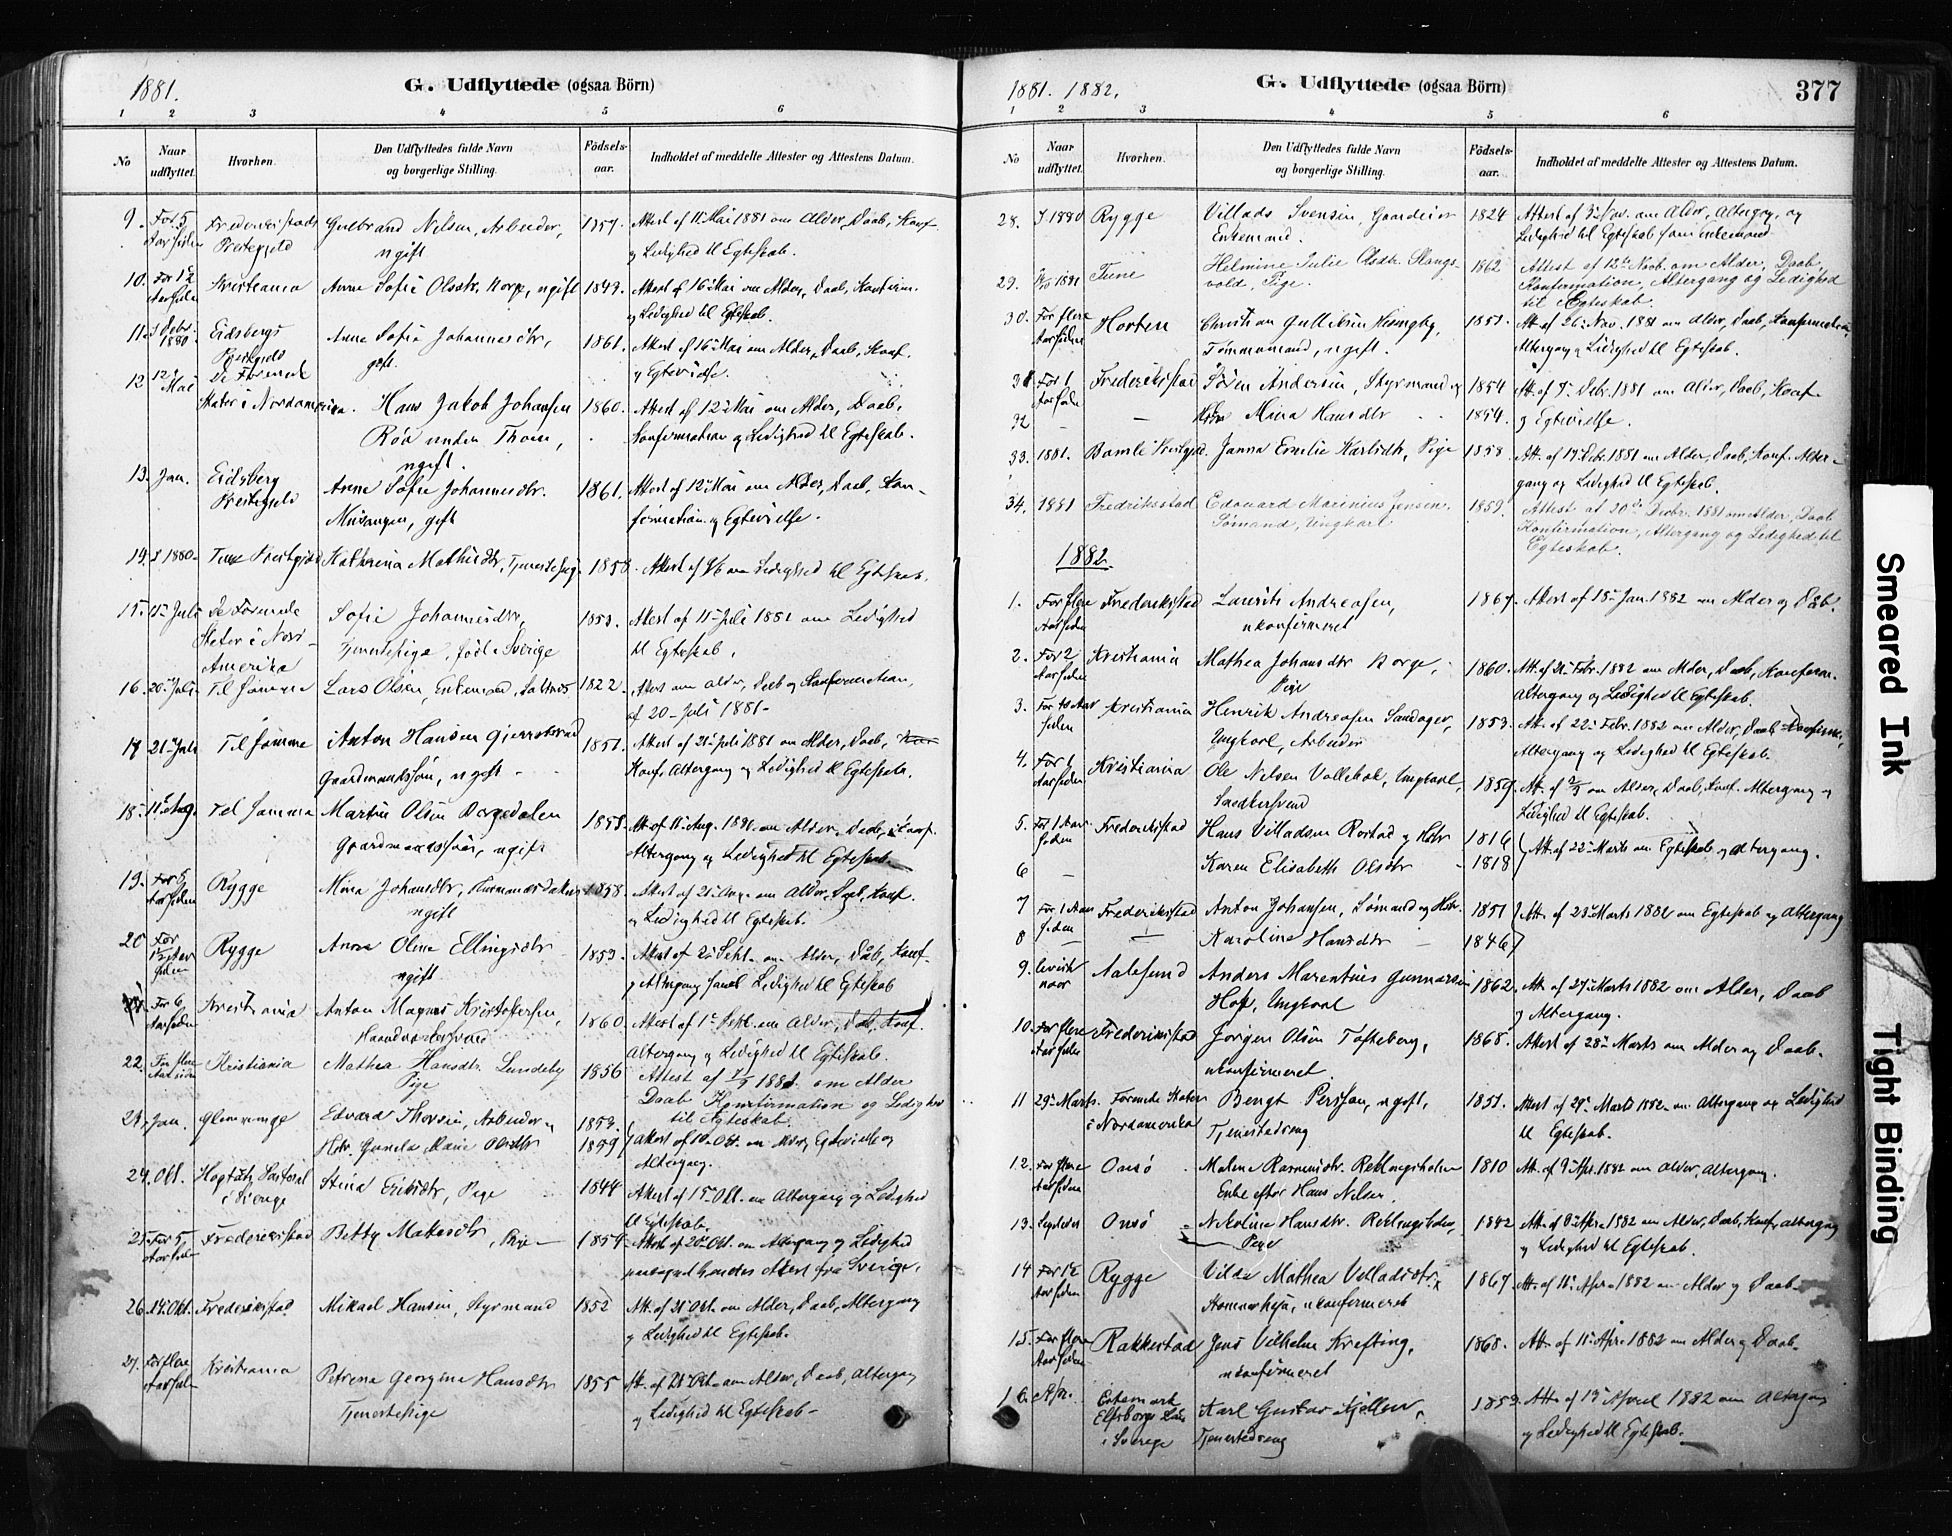 1881.
G. Udflyttede (ogsaa Börn)
1 2 3 4 5 6
No
Naar udflyttet.
Hvorhen.
Den Udflyttedes fulde Navn og borgerlige Stilling.
Födsels-aar.
Indholdet af meddelte Attester og Attestens Datum.
9. For 5 Aar siden Frederiksstads Gulbrand Nilsen, Arbeider, 1859. Attest af 11 Mai 1881 om Alder, Daab, Konf.
Prestegjeld ugift og Ledighed til Egteskab.
10. For 1½ Aar siden Kristiania Anne Sofie Olsdtr. ugift 1849. Attest af 16 Mai om Alder, Daab, Konfirm.
og Ledighed til Egteskab.
11. Debr. 1880 Eidsbergs Anne Sofie Johannesdtr, 1861. Attest af 16 Mai om Alder, Daab, Konf.
Prestegjeld gift. og Egtevielse.
12 12 Mai De Forenede
Stater i Nordamerika. Hans Jakob Johansen 1860. Attest af 12 Mai om Alder, Daab,
Röd under Thom, Konfirmation og Ledighed til Egteskab.
ugift.
13. Jan. Eidsberg Anne Sofie Johannesdtr. 1861. Attest af 12 Mai om Alder, Daab, Kon-
Prestegjeld gift firmation og Egtevielse.
14. I 1880 Tune Prestegjeld Kathrina Mathisdtr, Tjenestepige 1858. Attest af om Ledighed til Egteskab.
15. Juli De Forenede Sofie Johannesdtr, 1853. Attest af Juli 1881 om Ledighed
Stater i Nord- Tjenestepige, föd i Sverige til Egteskab.
Amerika
16. 20 Juli Til Sömme Lars Olsen, Enkemand, 1822. Attest om Alder, Daab og Konfirmation,
af 20 Juli 1881.
17 21 Juli Til Sömme Anton Hansen 1851. Attest af 21 Juli 1881 om Alder, Daab,
Gaardmandssön, ugift Konf. Altergang og Ledighed til Egteskab.
18. 11 Aug. Til Sömme Martin Olsen 1858. Att. af 11 Aug. 1881 om Alder, Daab, Konf.
Gaardmandssön, ugift Altergang og Ledighed til Egteskab.
19. For 5 Aar siden Rygge Mina Johansdtr, 1858. Attest af 21 Aug. om Alder, Daab, Konf.
ugift og Ledighed til Egteskab.
20 For 1½ Aar siden Rygge Anna Oline Ellingsdtr 1853. Attest af 2 Sept. om Alder, Daab, Konf.
ugift og Altergang samt Ledighed til Egteskab
21. For 6 Aar siden Kristiania Anton Magnus Kristoffersen, 1860. Attest af 1 Sept. om Alder, Daab, Konf.
Haandværkssvend Altergang og Ledighed til Egteskab.
22. For flere Aar siden Kristiania Mathea Hansdtr. Lundeby 1856 Attest af 1881 om Alder
Pige Daab Konfirmation og Ledighed
til Egteskab.
23. Jan. Glemminge Edvard Thorsen, Arbeider og 1853.
Hstr Gunda Marie Olsdtr 1859 Attest af 10 Okt. om Alder, Egtevielse og
Altergang.
24. Okt. Pastorat Stina Eriksdtr, Pige 1844 Attest af 15 Okt. om Altergang og Ledighed
i Sverige til Egteskab.
25. For 5 Aar siden Frederiksstad Betty, Pige 1854 Attest af 20 Okt. om Altergang og Ledighed
hendes Attest fra Sverige.
26. 14 Okt. Frederiksstad Mikael Hansen, Styrmand 1852 Att. af 21 Okt. om Alder, Daab, Altergang
og Ledighed til Egteskab.
27. For flere Aar siden Kristiania Petrina Georgine Hansdtr 1855 Att. af 28 Okt. om Alder, Daab, Altergang
Tjenestepige og Ledighed til Egteskab
1881. 1882.
G. Udflyttede (ogsaa Börn)
377
1 2 3 4 5 6
No
Naar udflyttet.
Hvorhen.
Den Udflyttedes fulde Navn og borgerlige Stilling.
Födsels-aar.
Indholdet af meddelte Attester og Attestens Datum.
28. I 1880 Rygge Villads Svensen, Gaardeier 1824 Attest af Nov. om Alder, Altergang, og
Enkemand. Ledighed til Egteskab som Enkemand
29. 1881 Tune Helmine Julie Olsdtr. Slangs- 1862 Attest af 12te Novb. om Alder, Daab,
vold, Pige. Konfirmation, Altergang og Ledighed
til Egteskab.
30. For flere Aar siden Horten Christian Gulliksen 1851. Att. af 26 Nov. 1881 om Alder, Daab, Konfirmation,
Tömmermand, ugift. Altergang og Ledighed til Egteskab.
31 For 1 Aar siden Frederiksstad Sören Andersen, Styrmand og 1854 Att. af Debr. 1881 om Alder, Daab, Konf.
32 — — Hstr Mina Hansdtr 1854. og Egtevielse.
33. 1881. Bamle Prestgjeld. Janna Emilie Karlsdtr, Pige 1858. Att. af Debr. 1881 om Alder, Daab, Konf. Alter-
gang og Ledighed til Egteskab.
34. 1881 Fredriksstad Edouard Marinius Jensen. 1859. Attest af 20de Decbr. 1881 om Alder, Daab
Sömand, Ungkarl Konfirmation, Altergang og Ledighed til
Egteskab.
1882.
1. For flere Aar siden Frederiksstad Laurits Andreasen, 1867. Attest af 18 Jan. 1882 om Alder og Daab.
ukonfirmeret
2. For 2 Aar siden Kristiania Mathea Johansdtr, 1860. Att. af 21 Febr. 1882 om Alder, Daab, Konfirm.
Pige Altergang og Ledighed til Egteskab.
3. For Aar siden Kristiania Henrik Andreasen, 1853. Att. af 22 Febr. 1882 om Alder, Daab, Konfirm.,
Ungkarl, Arbeider Altergang og Ledighed til Egteskab.
4. For Aar siden Kristiania Ole Nilsen, Ungkarl, 1859. Att. af om Alder, Daab, Konf. Altergang og
Snedkersvend Ledighed til Egteskab.
5. For 1 Aar siden Frederiksstad Hans Villadsen Rostad og Hstr 1816 Att. af 22 Marts om Egteskab og Altergang.
6 — Karen Elisabeth Olsdtr 1818
7 For 1 Aar siden Frederiksstad Anton Johansen, Sömand og Hstr. 1851 Att. af 23 Marts 1882 om Egteskab og Altergang
8 — — Karoline Hansdtr 1846
9. Uvist naar Aalesund Anders Marentius Gunnarsen 1862. Att. af 27 Marts 1882 om Alder, Daab
Hof, Ungkarl og Altergang.
10. For flere Aar siden Frederiksstad Jörgen Olsen Tofteberg, 1868. Attest af 28 Marts om Alder og Daab.
ukonfirmeret.
11 29 Marts. Forenede Stater Bengt Persson, ugift, 1851. Attest af 29 Marts 1882 om Altergang og Ledighed
i Nordamerika Tjenestedreng til Egteskab.
12. For flere Aar siden Onsö Malene Rasmusdtr. 1810 Att. af Apr. 1882 om Alder, Altergang.
Enke efter Hans Nilsen.
13. Onsö Nikoline Hansdtr. 1842 Att. af Apr. 1882 om Alder, Daab, Konf., Altergang
Pige og Ledighed til Egteskab.
14 For 1½ Aar siden Rygge Vilde Mathea Villadsdtr. 1867 Att. af 11 Apr. 1882 om Alder og Daab.
ukonfirmeret
15. For flere Aar siden Rakkestad Jens Vilhelm Krefting, 1868. Att. af 11 Apr. 1882 om Alder og Daab.
ukonfirmeret
16. Apr. Elfsborgs Län Karl Gustav 1853 Att. af 19 April 1882 om Altergang
i Sverige Tjenestedreng og Ledighed til Egteskab.
Smeared Ink
Tight Binding